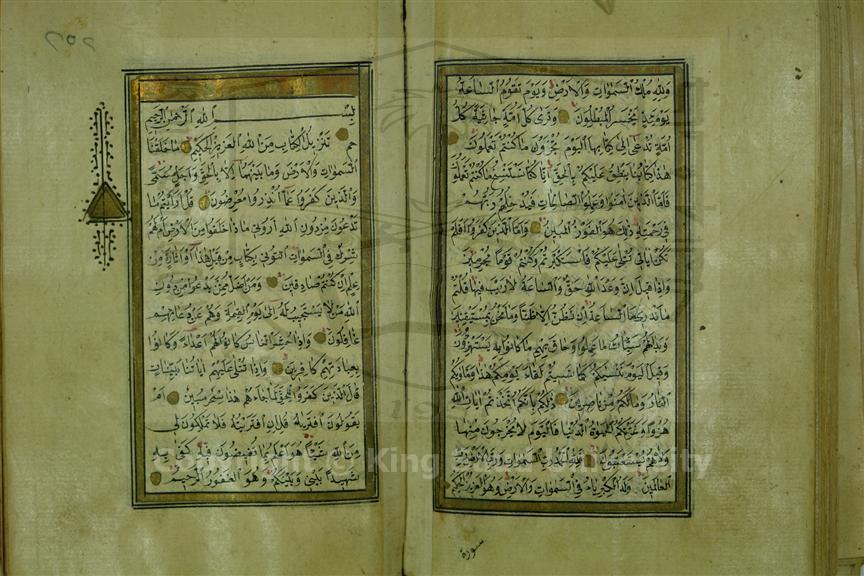 ولله ملك السموات والارض ويوم تقوم الساعة
يومئذ يخسر المبطلون وترى كل امة جاثية كل
امة تدعى الى كتابها اليوم تجزون ما كنتم تعملون
هذا كتابنا ينطق عليكم بالحق انا كنا نستنسخ ما كنتم تعملون
فاما الذين امنوا وعملوا الصالحات فيدخلهم ربهم
في رحمته ذلك هو الفوز المبين واما الذين كفروا افلم
تكن اياتي تتلى عليكم فاستكبرتم وكنتم قوما مجرمين
واذا قيل ان وعد الله حق والساعة لا ريب فيها قلتم
ما ندري ما الساعة ان نظن الا ظنا وما نحن بمستيقنين
وبدا لهم سيئات ما عملوا وحاق بهم ما كانوا به يستهزؤن
وقيل اليوم ننسيكم كما نسيتم لقاء يومكم هذا وماويكم
النار وما لكم من ناصرين ذلكم بانكم اتخذتم ايات الله
هزوا وغرتكم الحيوة الدنيا فاليوم لا يخرجون منها
ولا هم يستعتبون فلله الحمد رب السموات ورب الارض رب
العالمين وله الكبرياء في السموات والارض وهو العزيز الحكيم
سورة
بسم الله الرحمن الرحيم
حم تنزيل الكتاب من الله العزيز الحكيم ما خلقنا
السموات والارض وما بينهما الا بالحق واجل مسمى
والذين كفروا عما انذروا معرضون قل ارايتم ما
تدعون من دون الله اروني ماذا خلقوا من الارض ام لهم
شرك في السموات ائتوني بكتاب من قبل هذا او اثارة من
علم ان كنتم صادقين ومن اضل ممن يدعوا من دون
الله من لا يستجيب له الى يوم القيمة وهم عن دعائهم
غافلون واذا حشر الناس كانوا لهم اعداء وكانوا
بعبادتهم كافرين واذا تتلى عليهم اياتنا بينات
قال الذين كفروا للحق لما جاءهم هذا سحر مبين ام
يقولون افتريه قل ان افتريته فلا تملكون لي
من الله شيئا هو اعلم بما تفيضون فيه كفى به
شهيدا بيني وبينكم وهو الغفور الرحيم